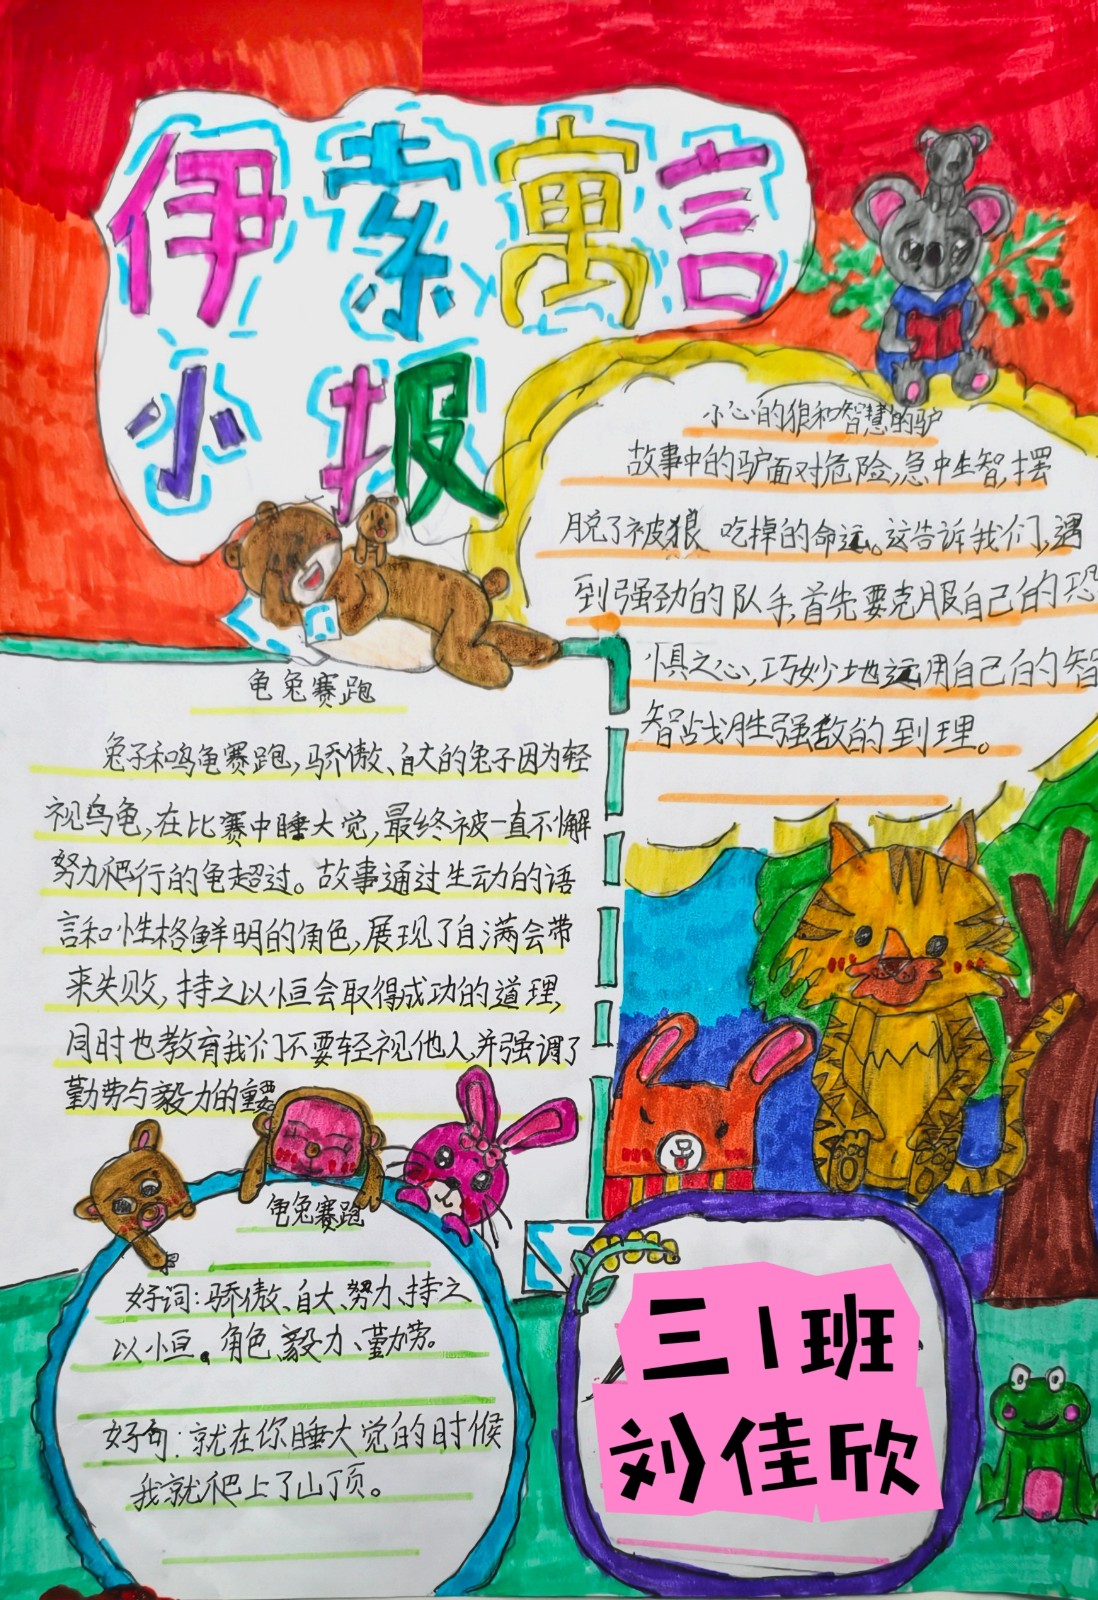 伊索寓言
小报
小心的狼和智慧的驴
故事中的驴面对危险,急中生智,摆
脱了被狼 吃掉的命运。这告诉我们,遇
到强劲的队手,首先要克服自己的恐
惧之心,巧妙地运用自己的智
智战胜强敌的到理。
龟兔赛跑
兔子和鸣龟赛跑,骄傲、自大的兔子因为轻
视鸟龟,在比赛中睡大觉,最终被一直不懈
努力爬行的龟超过。故事通过生动的语
言和性格鲜明的角色,展现了自满会带
来失败,持之以恒会取得成功的道理,
同时也教育我们不要轻视他人,并强调了
勤劳与毅力的重要
龟兔赛跑
好词:骄傲、自大、努力、持之
以恒。角色、毅力、勤劳。
好句:就在你睡大觉的时候
我就爬上了山顶。
三1班
刘佳欣